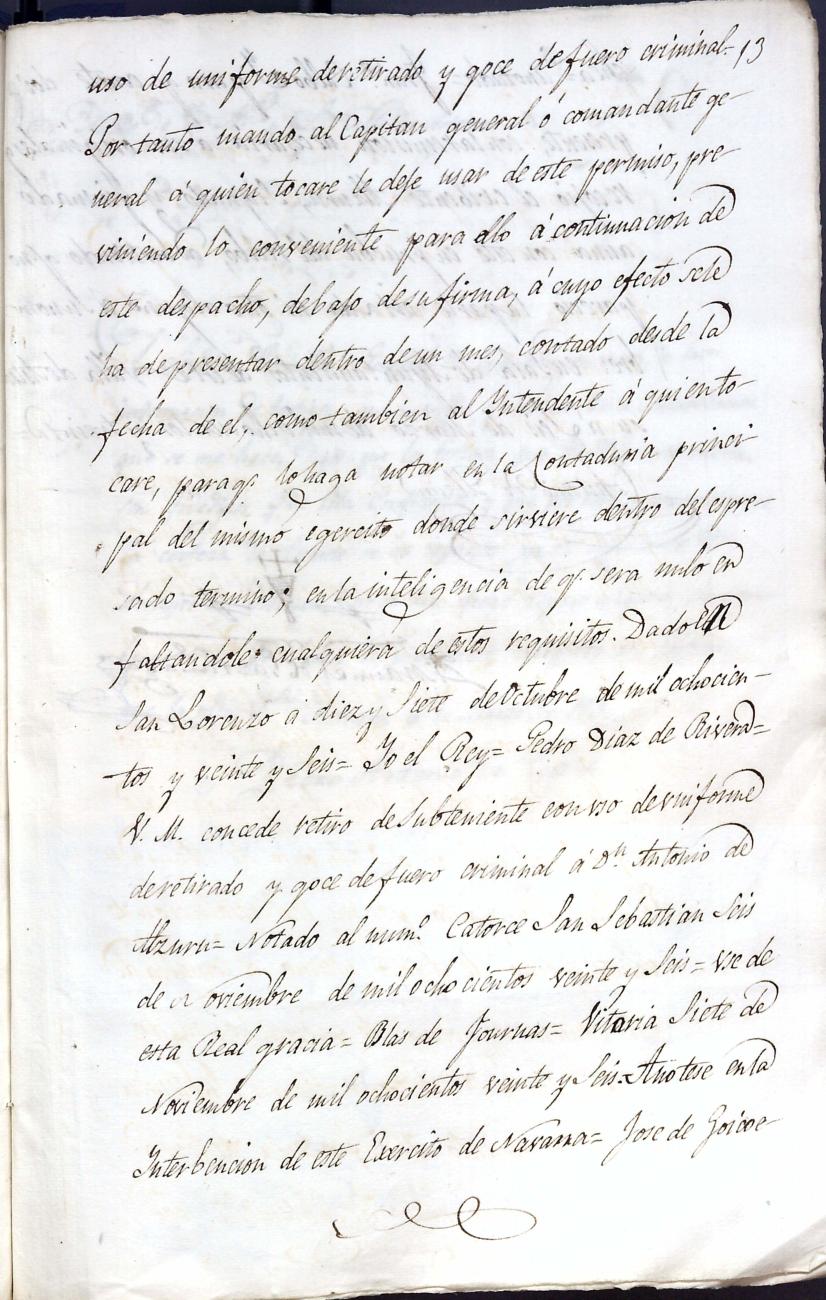 uso de uniforme de retirado y goce de fuero criminal= 13
Por tanto mando al Capitan general ó comandante ge-
neral á quien tocare le deje usar de este permiso, pre-
viniendo lo conveniente para ello á continuacion de
este despacho, debajo de su firma, á cuyo efecto se le
ha de presentar dentro de un mes, contado desde la
fecha de el, como tambien al Intendente á quien to-
care, para q.e lo haga notar en la Contaduria princi-
pal del mismo egercito donde sirviere dentro del espre-
sado termino; en la inteligencia de q.e sera nulo en
faltandole cualquiera de estos requisitos. Dado en
San Lorenzo á diez y Siete de Octubre de mil ochocien-
tos y veinte y Seis= Yo el Rey= Pedro Diaz de Rivera=
V. M. concede retiro de Subteniente con uso de uniforme
de retirado y goce de fuero criminal á D.n Antonio de
Alzuru= Notado al num.o Catorce San Sebastian Seis
de Noviembre de mil ochocientos veinte y Seis= Use de
esta Real gracia= Blas de Fournas= Vitoria Siete de
Noviembre de mil ochocientos veinte y Seis= Anotese en la
Interbencion de este Exercito de Navarra= Jose de Goicoe-